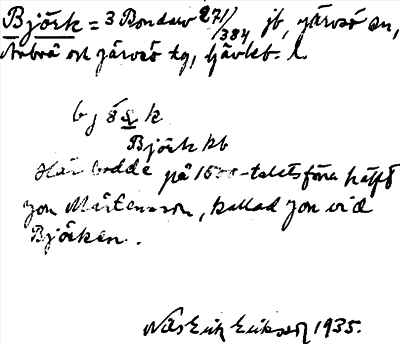 Björk = 3 Bondarv 2 7/1/384 jb, Järvsö sn,
Arbrå och Järvsö tg, Gävlebg. l.
b j ö r k
Björk kb
Här bodde på 1500-talets förra hälft
Jon Mårtensson, kallad Jon vid
Björken.
Nils Erik Eriksson 1935.